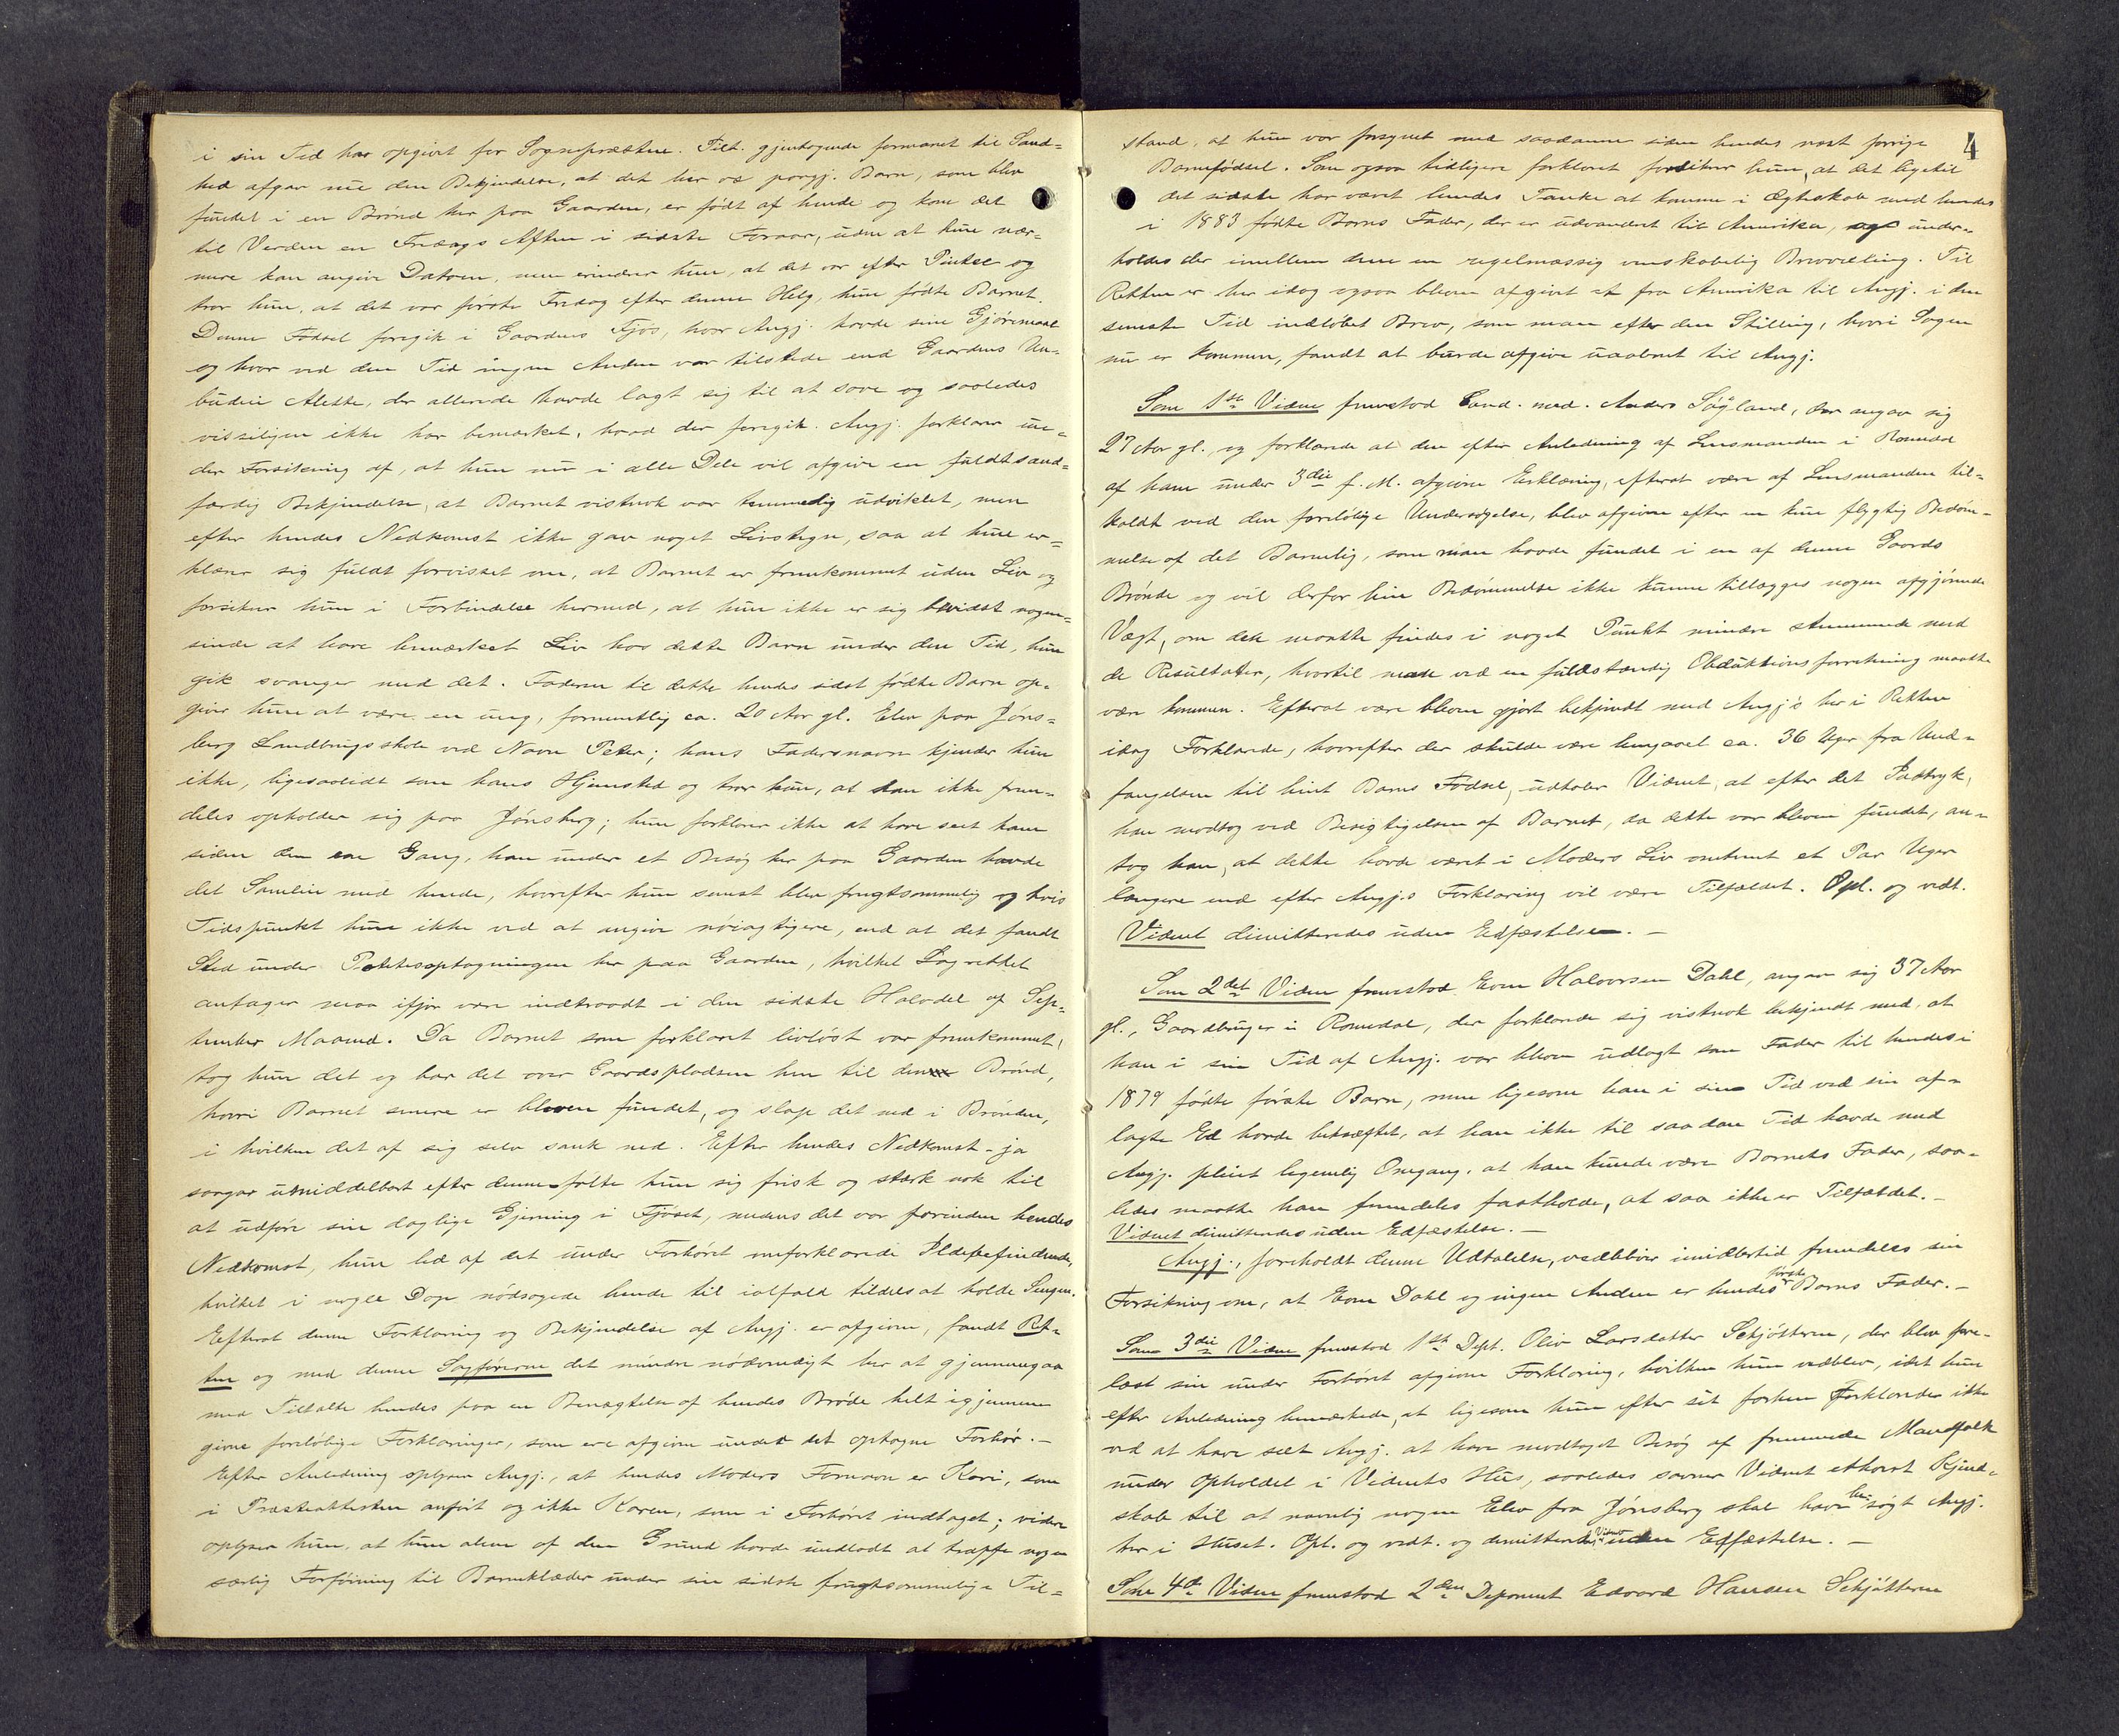 i sin Tid har opgivet for Sognepræsten. Tilt. gjentagende formanet til Sand-
hed afgav nu den Bekjendelse, at det her os paagj. Barn, som blev
fundet i en Brønd her paa Gaarden, er født af hende og kom det
til Verden en Fredags Aften i sidste Foraar, uden at hun nær-
mere kan angive Datoen, men erindrer hun, at det var efter Pintse og
tror hun, at det var første Fredag efter denne Helg, hun fødte Barnet.
Denne Fødsel foregik i Gaardens Fjøs, hvor Angj. havde sine Gjøremaal
og hvor ved den Tid ingen Anden var tilstede end Gaardens Un-
budeie Alette, der allerede havde lagt sig til at sove og saaledes
visseligen ikke har bemærket, hvad der foregik. Angj. forklarer un-
der Forsikring af, at hun nu i alle Dele vil afgive en fuldt sand-
færdig Bekjendelse, at Barnet vistnok var temmelig udviklet, men
efter hendes Nedkomst ikke gav noget Livstegn, saa at hun er-
klærer sig fuldt forvisset om, at Barnet er fremkommet uden Liv og
forsikrer hun i Forbindelse hermed, at hun ikke er sig bevidst nogen-
sinde at have bemærket Liv hos dette Barn under den Tid, hun
gik svanger med det. Faderen til dette hendes sidst fødte Barn op-
giver hun at være en ung, formentlig ca. 20 Aar gl. Elev paa Jøns-
berg Landbrugsskole ved Navn Peter; hans Fadersnavn kjender hun
ikke, ligesaalidt som hans Hjemsted og tror hun, at han ikke frem-
deles opholder sig paa Jønsberg; hun forklarer ikke at have seet ham
siden den ene Gang, han under et Besøg her paa Gaarden havde
det Samleie med hende, hvorefter hun senest blev frugtsommelig og hvis
Tidspunkt hun ikke ved at angive nøiagtigere, end at det fandt
Sted under Potetesoptagningen her paa Gaarden, hvilket Lagrettet
antager maa ifjor være indtraadt i den sidste Halvdel af Sep-
tember Maaned. Da Barnet som forklaret livløst var fremkommet,
tog hun det og bar det over Gaardspladsen hen til den Brønd,
hvori Barnet senere er bleven fundet, og slap det ned i Brønden,
i hvilken det af sig selv sank ned. Efter hendes Nedkomst - ja
sogar umiddelbart efter denne følte hun sig frisk og stærk nok til
at udføre sin daglige Gjerning i Fjøset, medens det var forinden hendes
Nedkomst, hun led af det under Forhøret omforklarede Ildebefindende,
hvilket i nogle Dage nødsagede hende til ialfald tildels at holde Sengen.
Efterat denne Forklaring og Bekjendelse af Angj. er afgiven, fandt Ret-
ten og med denne Sagførerne det mindre nødvendigt her at gjennemgaa
med Tiltalte hendes paa en Benægtelse af hendes Brøde helt igjennem
givne foreløbige Forklaringer, som ere afgivne under det optagne Forhør. -
Efter Anledning oplyser Angj., at hendes Moders Fornavn er Kari, som
i Præsteattesten anført og ikke Karen, som i Forhøret indtaget; videre
oplyser hun, at hun alene af den Grund havde undladt at træffe nogen
særlig Forføining til Barneklæder under sin sidste frugtsommelige Til-
4
stand, at hun var forsynet med saadanne siden hendes næst forrige
Barnefødsel. Som ogsaa tidligere forklaret fordikrer hun, at det ligetil
det sidste har været hendes Tanke at komme i Ægteskab med hendes
i 1883 fødte Barns Fader, der er udvandret til Amerika, og under-
holdes der imellem dem en regelmæssig venskabelig Brevvexling. Til
Retten er her idag ogsaa bleven afgivet et fra Amerika til Angj. i den
seneste Tid indløbet Brev, som man efter den Stilling, hvori Sagen
nu er kommen, fandt at burde afgive uaabnet til Angj.
Som 1ste Vidne fremstod Cand. med. Anders Søyland, der angav sig
27 Aar gl. og forklarede at den efter Anledning af Lensmanden i Romedal
af ham under 3die f. M. afgivne Erklæring, efterat være af Lensmanden til-
kaldt ved den foreløbige Undersøgelse, blev afgiven efter en kun flygtig Bedøm-
melse af det Barnelig, som man havde fundet i en af denne Gaards
Brønde og vil derfor hin Bedømmelse ikke kunne tillægges nogen afgjørende
Vægt, om den maatte findes i noget Punkt mindre stemmende med
de Resultater, hvortil man ved en fuldstændig Obduktionsforretning maatte
være kommen. Efterat være bleven gjort bekjendt med Angj's her i Retten
idag Forklarede, hvorefter der skulde være hengaaet ca. 36 Uger fra Und-
fangelsen til hint Barns Fødsel, udtaler Vidnet, at efter det Indtryk,
han modtog ved Besigtigelsen af Barnet, da dette var bleven fundet, an-
tog han, at dette havde været i Moders Liv omtrent et Par Uger
længere end efter Angj.s Forklaring vil være Tilfældet. Opl. og vedt.
Vidnet dimitteredes uden Edfæstelse. -
Som 2det Vidne fremstod Even Halvorsen Dahl, angav sig 37 Aar
gl., Gaardbruger i Romedal, der forklarede sig vistnok bekjendt med, at
han i sin Tid af Angj. var bleven udlagt som Fader til hendes i
1879 fødte første Barn, men ligesom han i sin Tid ved sin af-
lagte Ed havde bekræftet, at han ikke til saadan Tid havde med
Angj. pleiet legemlig Omgang, at han kunde være Barnets Fader, saa-
ledes maatte han fremdeles fastholde, at saa ikke er Tilfældet. -
Vidnet dimitteredes uden Edfæstelse. -
Angj., foreholdt denne Udtalelse, vedbliver imidlertid fremdeles sin
Forsikring om, at Even Dahl og ingen Anden er hendes første Barns Fader. -
Som 3die Vidne fremstod 1ste Dept. Oliv Larsdatter Sckjøtterun, der blev fore-
læst sin under Forhøret afgivne Forklaring, hvilken hun vedblev, idet hun
efter Anledning bemærkede, at ligesom hun efter sit forhen Forklarede ikke
ved at have seet Angj. at have modtaget Besøg af fremmede Mandfolk
under Opholdet i Vidnets Hus, saaledes savner Vidnet ethvert Kjend-
skab til at navnlig nogen Elev fra Jønsberg skal have besøgt Angj.
her i Huset. Opl. og vedt. og dimitteredes Vidnet uden Edfæstelse. -
Som 4de Vidne fremstod 2den Deponent Edvard Hansen Sckjøtterun